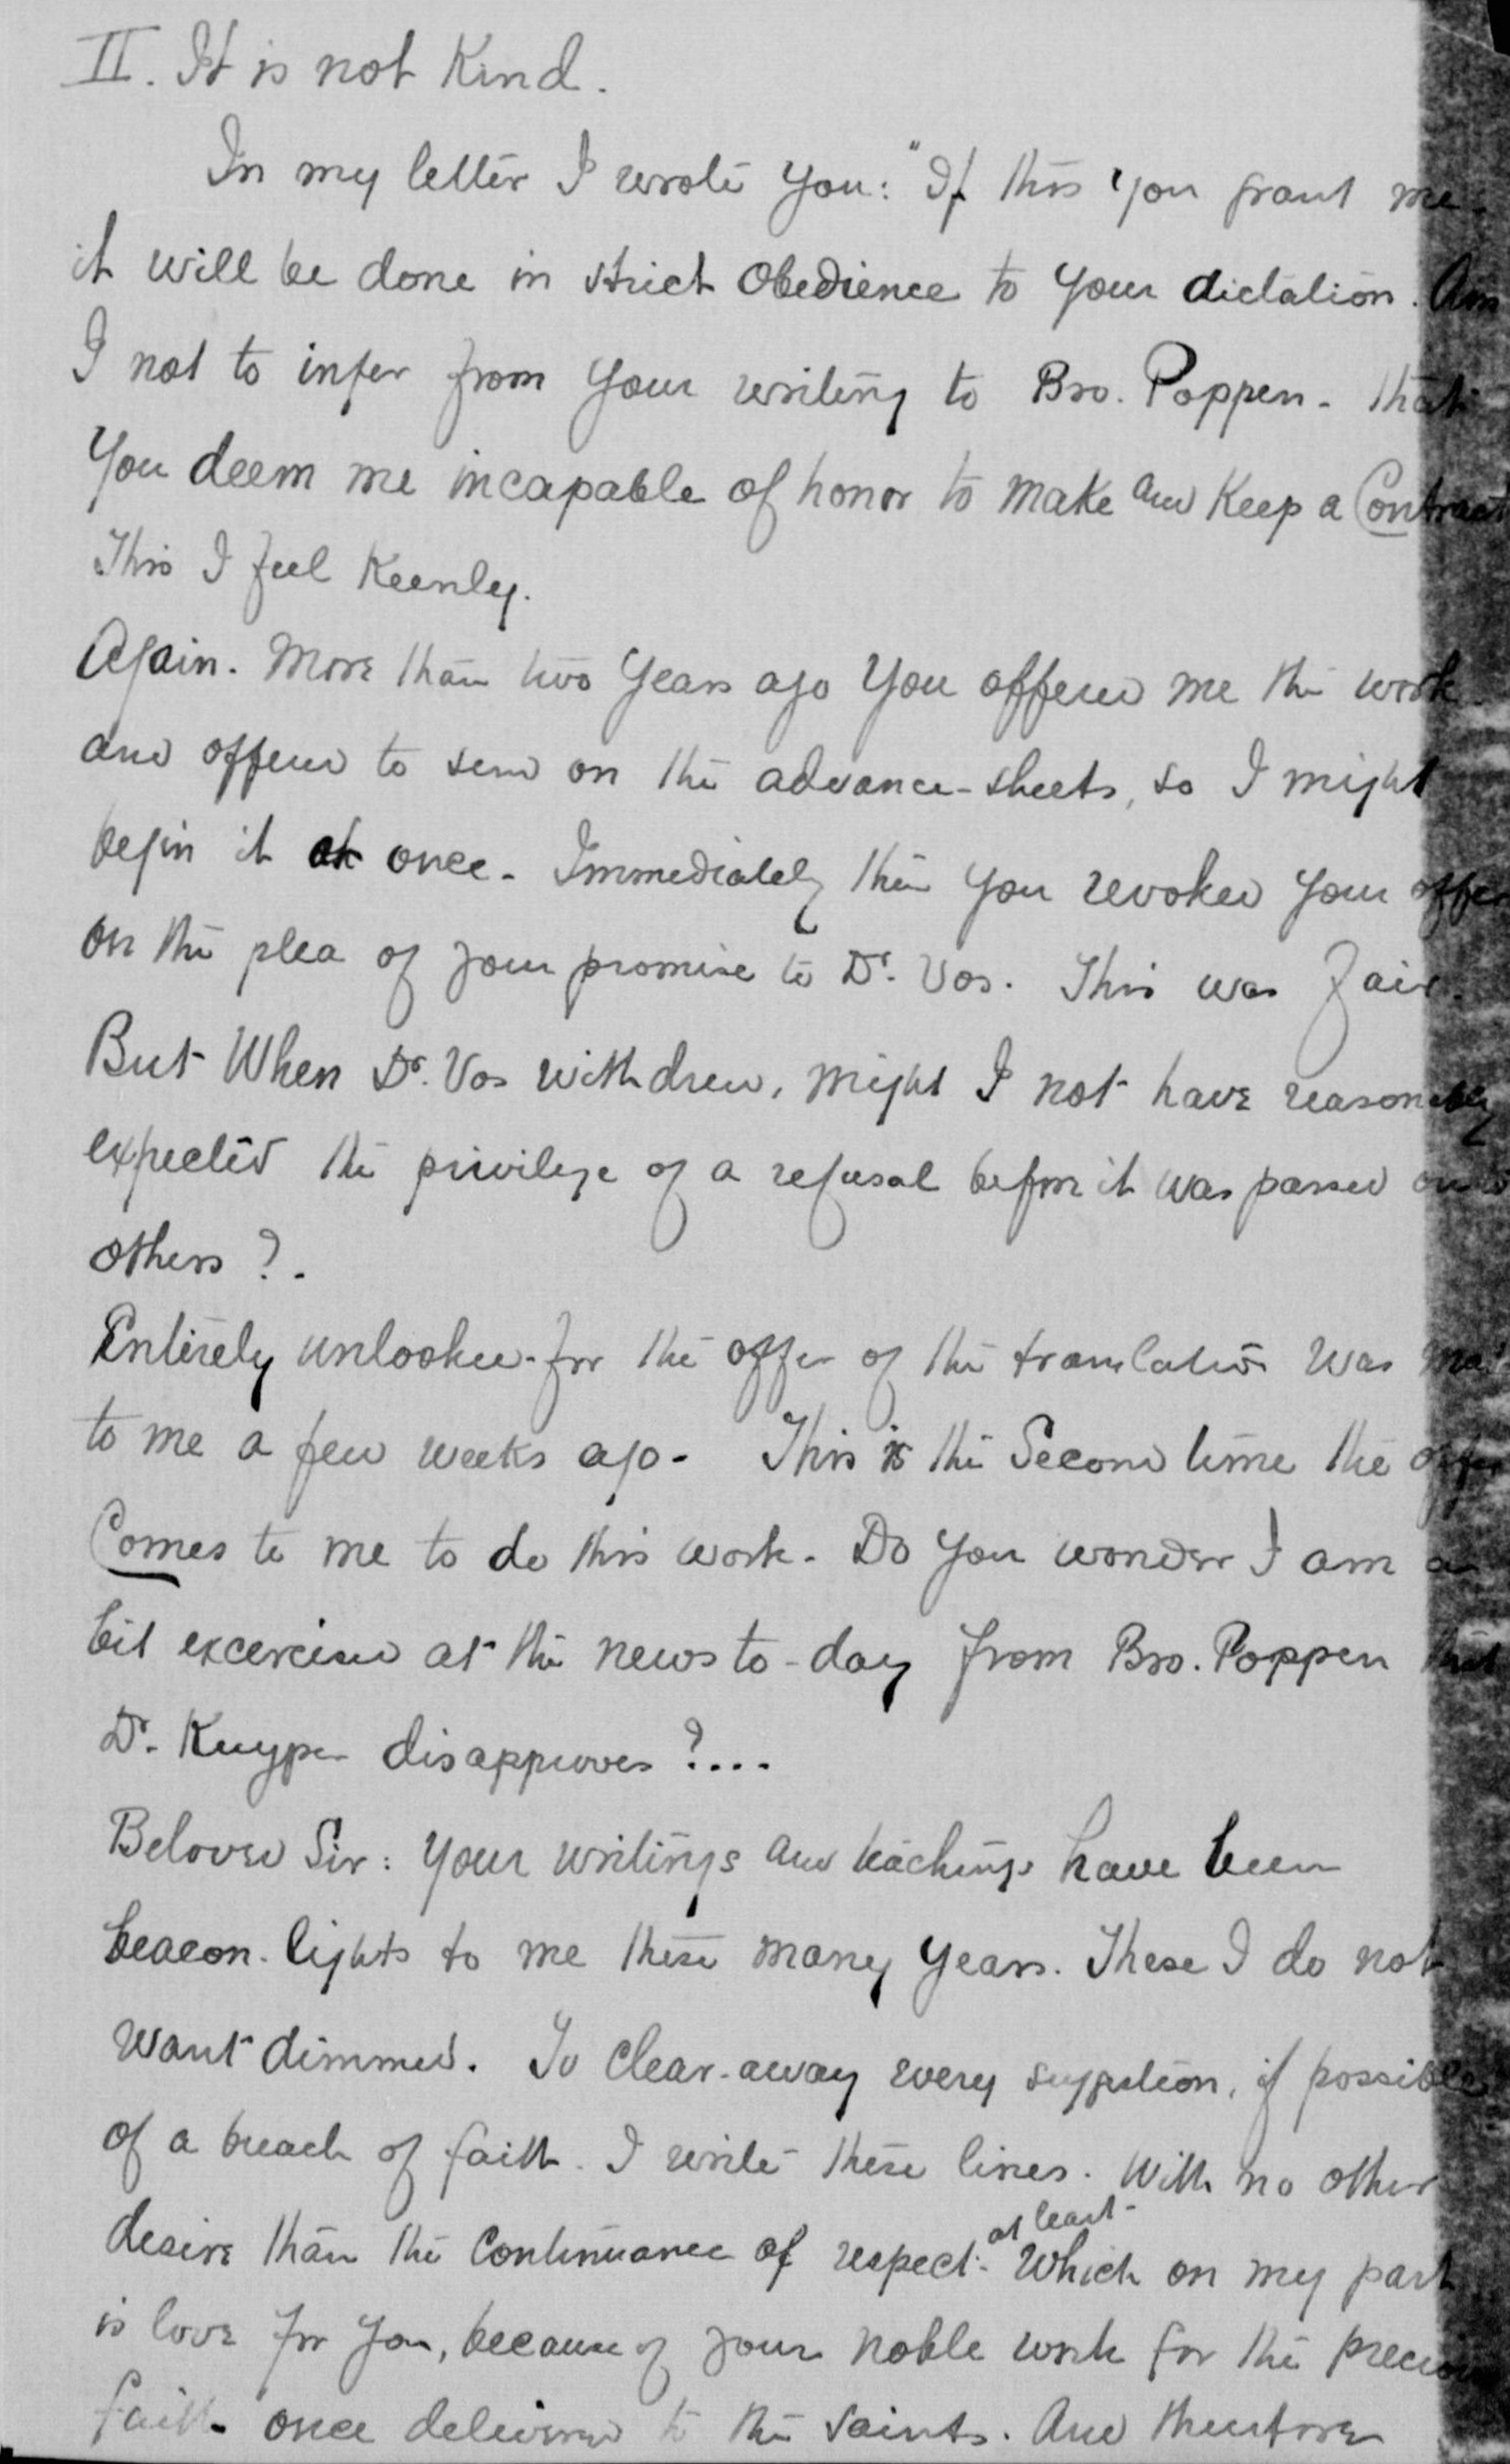 II. It is not Kind.
In my letter I wrote you: "If this you grant me.
it will be done in strict Obedience to your dictation. Am
I not to infer from your writing to Bro. Poppen - that
You deem me incapable of honor to make and Keep a Contract
This I feel Keenly.
Again. More than two years ago you offered me the work
and offered to send on the advance-sheets, so I might
begin it at once. Immediately then you revoked your offer
on the plea of your promise to Dr. Vos. This was fair.
But When Dr. Vos withdrew, might I not have reasonably
expected the privilege of a refusal before it was passed on to
others?.
Entirely unlooked-for the offer of the translation was
to me a few weeks ago - This is the Second time the offer
Comes to me to do this work. Do you wonder I am a
bit excercised at the news to-day from Bro. Poppen that
Dr. Kuyper disapproves?....
Beloved Sir: Your writings and teachings have been
beacon-lights to me these many years. These I do not
want dimmed. To clear-away every suggestion, if possible
of a breach of faith. I write these lines. With no other
desire than the Continuance of respect - at least - Which on my part
is love for you, because of your noble work for the precious
faith once delivered to the saints. And therefore